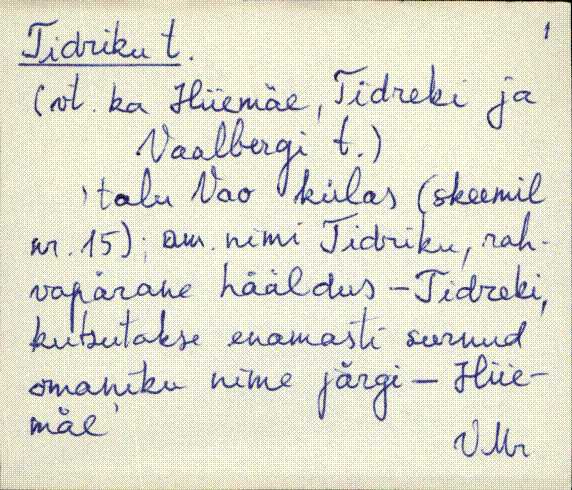 1
Tidriku t.
(vt. ka Hiiemäe, Tidreki ja
Vaalbergi t.)
'talu Vao külas (skeemil
nr. 15); am. nimi Tidriku, rah-
vapärane hääldus – Tidreki,
kutsutakse enamasti surnud
omaniku nime järgi – Hiie-
mäe'
VMr